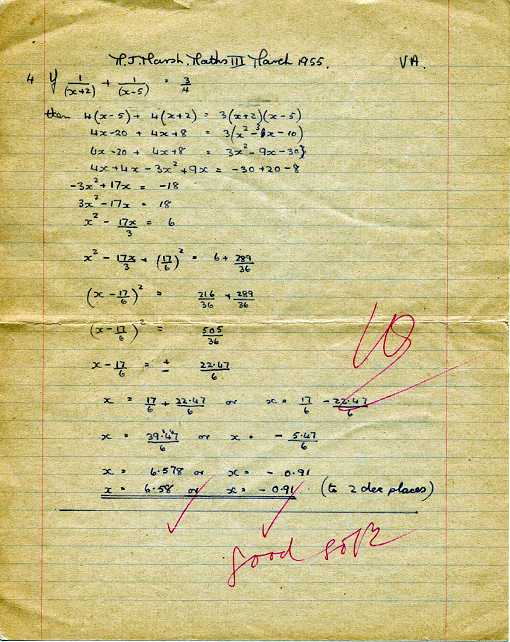 R.J. Marsh. Maths III March 1955. VA.
4 If 1/(x+2) + 1/(x-5) = 3/4
then 4(x-5) + 4(x+2) = 3(x+2)(x-5)
4x-20 + 4x+8 = 3(x²-3x-10)
4x-20 + 4x+8 = 3x²-9x-30
4x+4x-3x²+9x = -30+20-8
-3x²+17x = -18
3x²-17x = 18
x² - 17x/3 = 6
x² - 17x/3 + (17/6)² = 6 + 289/36
(x - 17/6)² = 216/36 + 289/36
(x - 17/6)² = 505/36
x - 17/6 = ± 22.47/6
x = 17/6 + 22.47/6 or x = 17/6 - 22.47/6
x = 39.47/6 or x = - 5.47/6
x = 6.578 or x = - 0.91
x = 6.58 or x = - 0.91 (to 2 dec places)
10
good